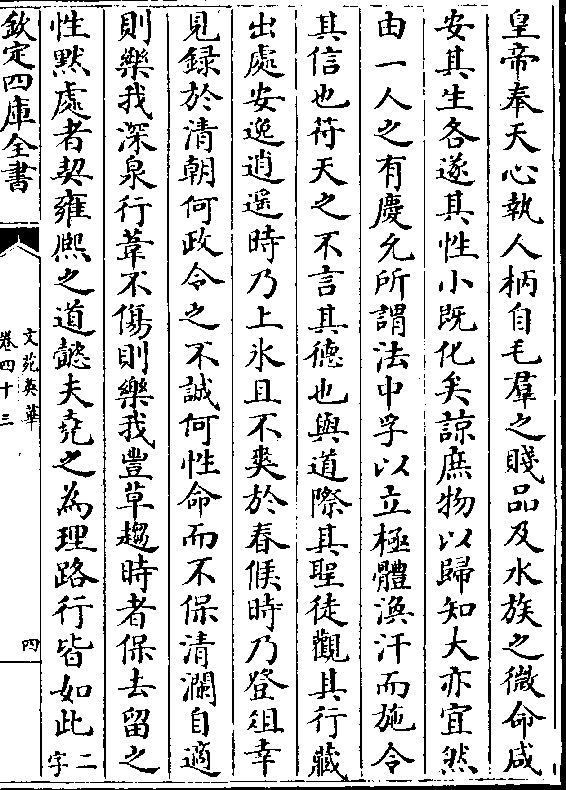 皇帝奉天心執人柄自毛羣之賤品及水族之微命咸
安其生各遂其性小既化矣諒庶物以歸知大亦宜然
由一人之有慶允所謂法中孚以立極體渙汗而施令
其信也符天之不言其德也與道際其聖徒觀其行藏
出處安逸逍遥時乃上氷且不爽於春候時乃登俎幸
見録於清朝何政令之不誠何性命而不保清瀾自適
則樂我深泉行葦不傷則樂我豐草趨時者保去留之
性黙處者契雍熙之道懿夫堯之為理路行皆如此二字
欽定四庫全書
文苑英華
卷四十三
四